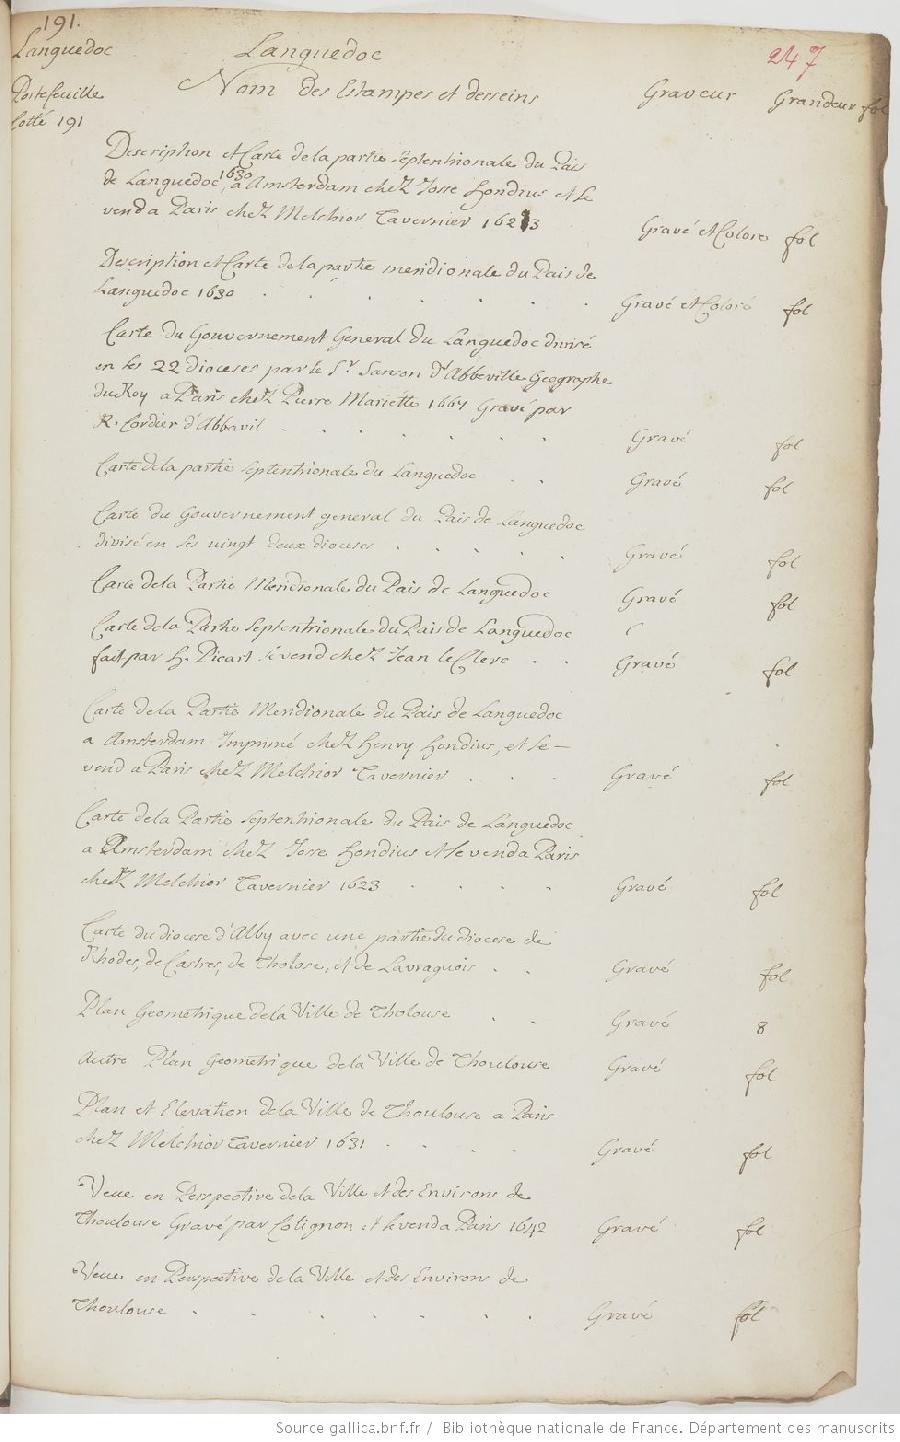 191.
Languedoc
Portefeuille
Cotté 191
Languedoc
247
Nom des Estampes et desseins Graveur Grandeur fol
Description et Carte de la partie septentrionale du Pais
de Languedoc 1630 a Amsterdam chez Josse Hondius et se
vend a Paris chez Melchior Tavernier Gravé et Coloré fol
Description et Carte de la partie meridionale du Pais de
Languedoc 1630 Gravé et Coloré fol
Carte du Gouvernement General du Languedoc divisé
en ses 22 dioceses par le Sr. Sanson d'Abbeville Geographe
du Roy a Paris chez Pierre Mariette 1667 Gravé par
R. Cordier d'Abbevil Gravé fol
Carte de la partie septentrionale du Languedoc Gravé fol
Carte du Gouvernement general du Pais de Languedoc
divisé en ses vingt deux dioceses Gravé fol
Carte de la Partie Meridionale du Pais de Languedoc Gravé fol
Carte de la Partie Septentrionale du Pais de Languedoc
fait par H. Picart se vend chez Jean le Clerc Gravé fol
Carte de la Partie Meridionale du Pais de Languedoc
a Amsterdam Imprimé chez Henry Hondius, et se
vend a Paris chez Melchior Tavernier Gravé fol
Carte de la Partie Septentrionale du Pais de Languedoc
a Amsterdam chez Josse Hondius et se vend a Paris
chez Melchior Tavernier 1623 Gravé fol
Carte du diocese d'Alby avec une partie du diocese de
Rhodes, de Castres, de Tholose, et de Lavragois Gravé fol
Plan Geometrique de la Ville de Tholouse Gravé 8
Autre Plan Geometrique de la Ville de Thoulouse Gravé fol
Plan et Elevation de la Ville de Thoulouse a Paris
chez Melchior Tavernier 1631 Gravé fol
Veue en Perspective de la Ville et des Environs de
Thoulouse Gravé par Cotignon et se vend a Paris 1642 Gravé fol
Veue en Perspective de la Ville et des Environs de
Thoulouse Gravé fol
Source gallica.bnf.fr / Bibliothèque nationale de France. Département des manuscrits